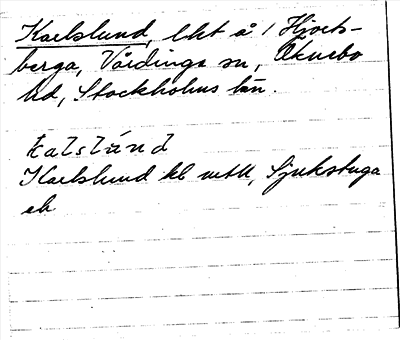 Karlslund, lht å 1 Hjorts-
berga, Vårdinge sn, Öknebo
hd, Stockholms län.
kaḷslúnd
Karlslund hl mtll, Sjukstuga
eb